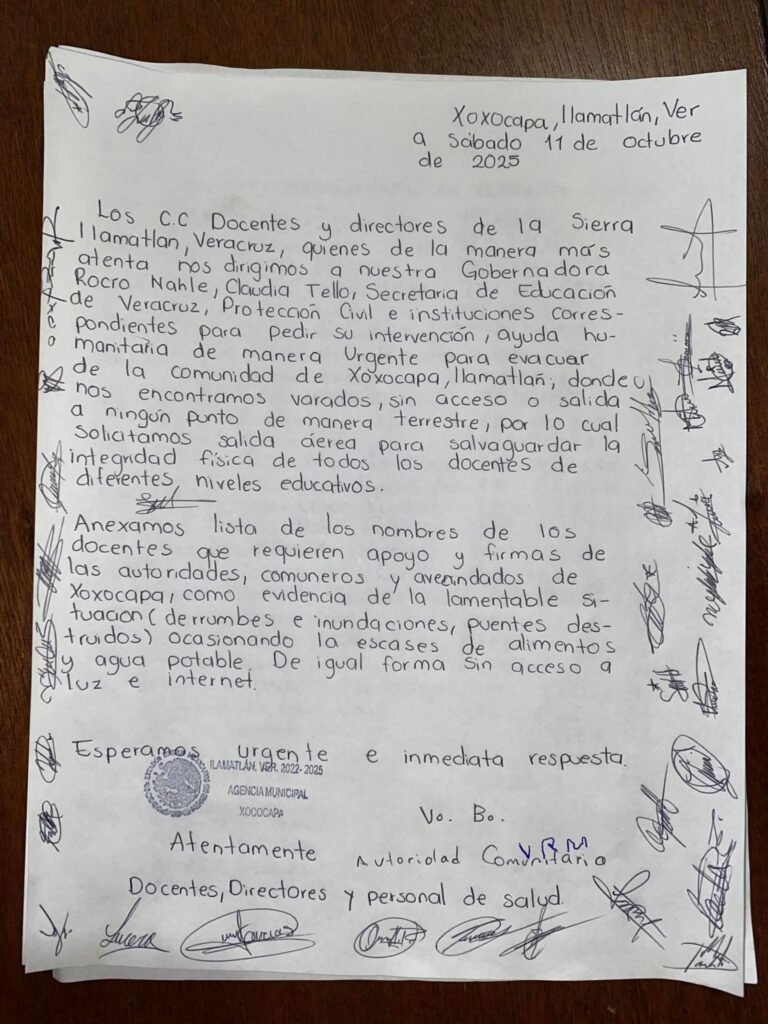 Xoxocapa, Ilamatlán, Ver
a Sábado 11 de octubre
de 2025
Los C.C Docentes y directores de la Sierra
Ilamatlan, Veracruz, quienes de la manera más
atenta nos dirigimos a nuestra Gobernadora
Rocro Nahle, Claudia Tello, Secretaria de Educación
de Veracruz, Protección Civil e instituciones corres-
pondientes para pedir su intervención, ayuda hu-
manitaria de manera Urgente para evacuar
de la comunidad de Xoxocapa, Ilamatlañ, donde
nos encontramos varados, sin acceso o salida
a ningún punto de manera terrestre, por lo cual
Solicitamos salida áerea para salvaguardar la
integridad física de todos los docentes de
diferentes niveles educativos.
Anexamos lista de los nombres de los
docentes que requieren apoyo y firmas de
las autoridades, comuneros y avecindados de
Xoxocapa, como evidencia de la lamentable si-
tuación (derrumbes e inundaciones, puentes des-
truidos) ocasionando la escases de alimentos
y agua potable. De igual forma sin acceso a
luz e internet.
Esperamos urgente e inmediata respuesta.
ILAMATLÁN, VER. 2022-2025
AGENCIA MUNICIPAL
XOCOCAPA
Vo. Bo.
Atentamente
V R M
Autoridad Comunitaria
Docentes, Directores y personal de salud.
Lucero